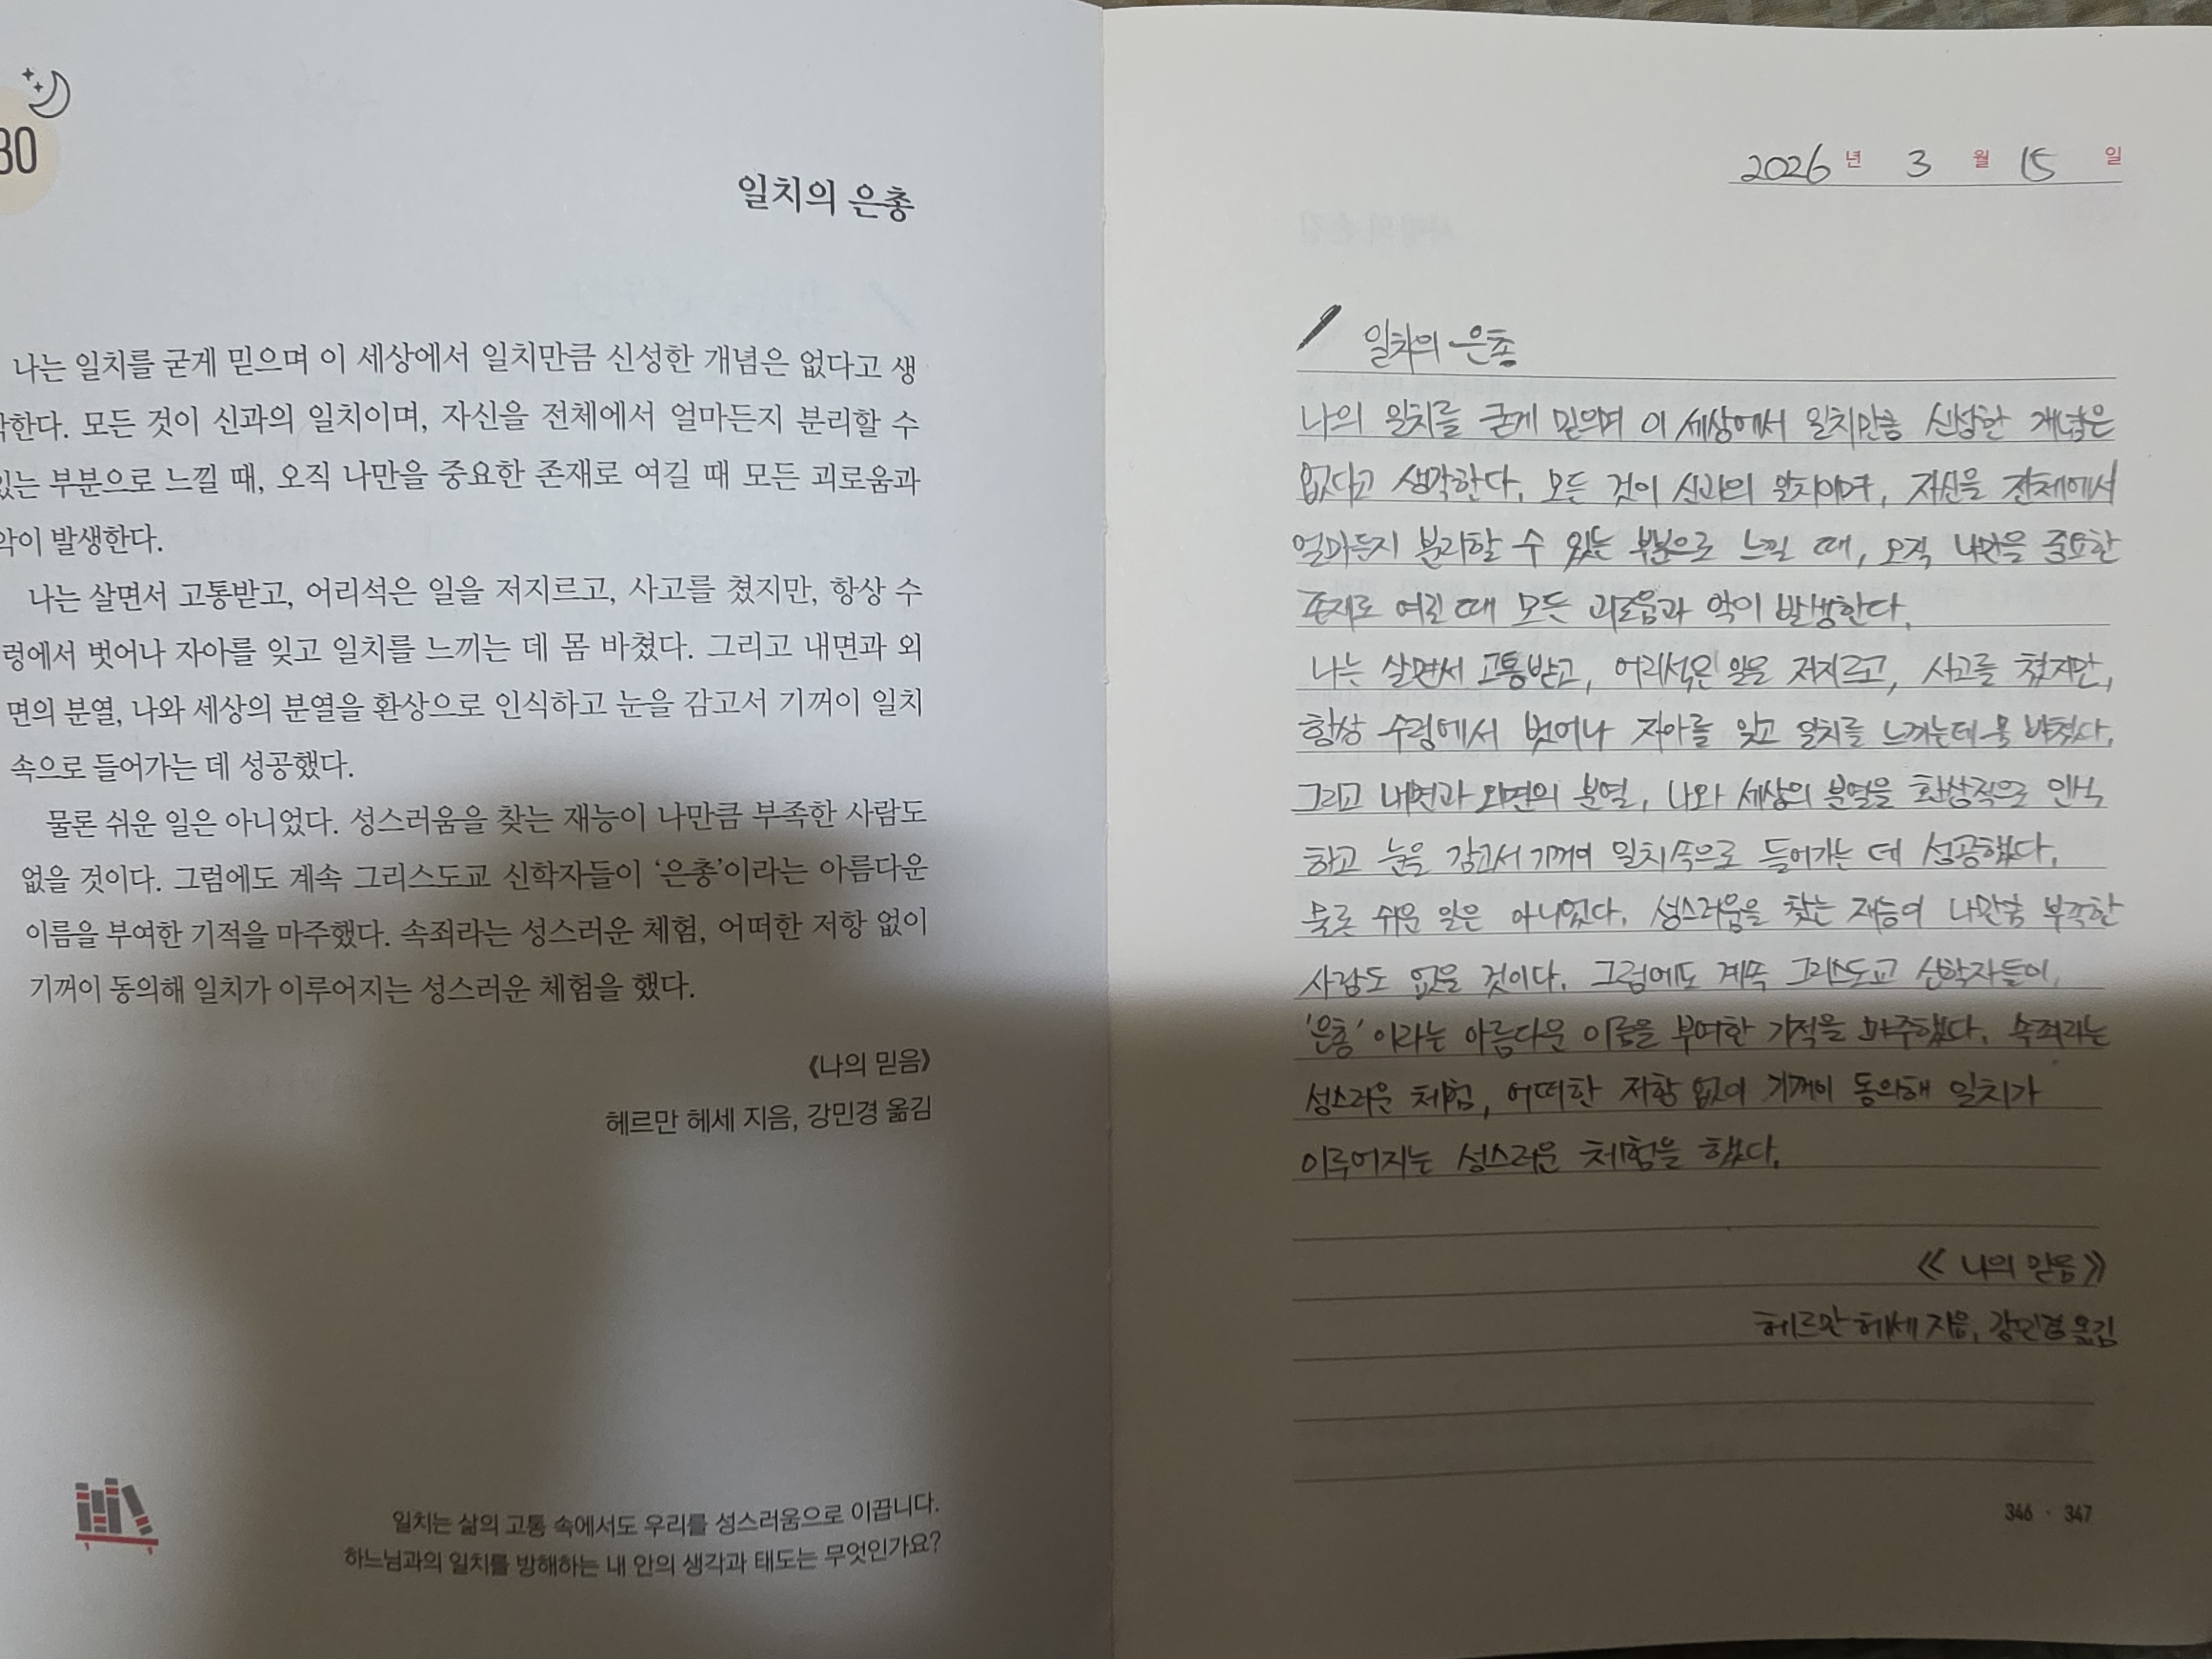 30
일치의 은총
나는 일치를 굳게 믿으며 이 세상에서 일치만큼 신성한 개념은 없다고 생
각한다. 모든 것이 신과의 일치이며, 자신을 전체에서 얼마든지 분리할 수
있는 부분으로 느낄 때, 오직 나만을 중요한 존재로 여길 때 모든 괴로움과
악이 발생한다.
나는 살면서 고통받고, 어리석은 일을 저지르고, 사고를 쳤지만, 항상 수
렁에서 벗어나 자아를 잊고 일치를 느끼는 데 몸 바쳤다. 그리고 내면과 외
면의 분열, 나와 세상의 분열을 환상으로 인식하고 눈을 감고서 기꺼이 일치
속으로 들어가는 데 성공했다.
물론 쉬운 일은 아니었다. 성스러움을 찾는 재능이 나만큼 부족한 사람도
없을 것이다. 그럼에도 계속 그리스도교 신학자들이 ‘은총’이라는 아름다운
이름을 부여한 기적을 마주했다. 속죄라는 성스러운 체험, 어떠한 저항 없이
기꺼이 동의해 일치가 이루어지는 성스러운 체험을 했다.
《나의 믿음》
헤르만 헤세 지음, 강민경 옮김
일치는 삶의 고통 속에서도 우리를 성스러움으로 이끕니다.
하느님과의 일치를 방해하는 내 안의 생각과 태도는 무엇인가요?
2026 년 3 월 15 일
일치의 은총
나의 일치를 굳게 믿으며 이 세상에서 일치만큼 신성한 개념은
없다고 생각한다. 모든 것이 신과의 일치이며, 자신을 전체에서
얼마든지 분리할 수 있는 부분으로 느낄 때, 오직 나만을 중요한
존재로 여길 때 모든 괴로움과 악이 발생한다.
나는 살면서 고통받고, 어리석은 일을 저지르고, 사고를 쳤지만,
항상 수렁에서 벗어나 자아를 잊고 일치를 느끼는데 몸 바쳤다.
그리고 내면과 외면의 분열, 나와 세상의 분열을 환상적으로 인식
하고 눈을 감고서 기꺼이 일치속으로 들어가는 데 성공했다.
물론 쉬운 일은 아니었다. 성스러움을 찾는 재능이 나만큼 부족한
사람도 없을 것이다. 그럼에도 계속 그리스도교 신학자들이
'은총' 이라는 아름다운 이름을 부여한 기적을 마주했다. 속죄라는
성스러운 체험, 어떠한 저항 없이 기꺼이 동의해 일치가
이루어지는 성스러운 체험을 했다.
《 나의 믿음》
헤르만 헤세 지음, 강민경 옮김
346 · 347